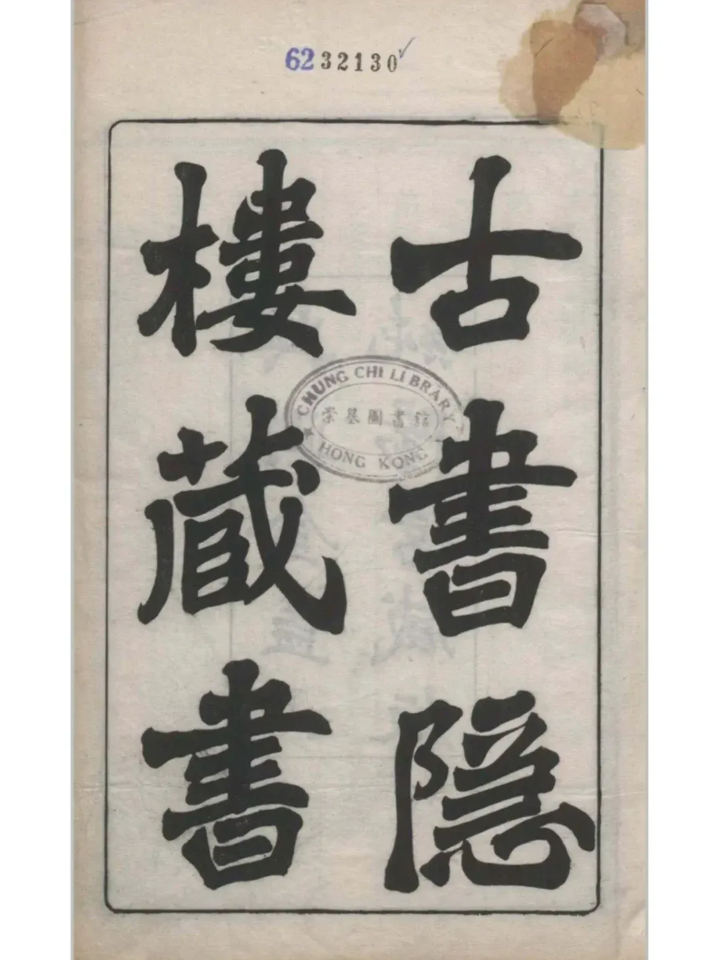 6232130
古書隐
樓蔵書
CHUNG CHI LIBRARY
崇基圖書館
HONG KONG